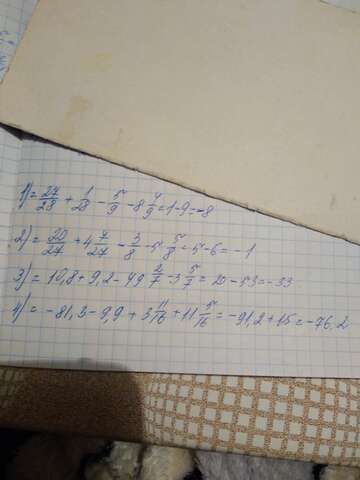 1) = 27/28 + 1/28 - 5/9 - 8 4/9 = 1 - 9 = -8
2) = 20/27 + 4 7/27 - 3/8 - 5 5/8 = 5 - 6 = -1
3) = 10,8 + 9,2 - 49 2/7 - 3 5/7 = 20 - 53 = -33
4) = -81,3 - 9,9 + 3 11/16 + 11 5/16 = -91,2 + 15 = -76,2